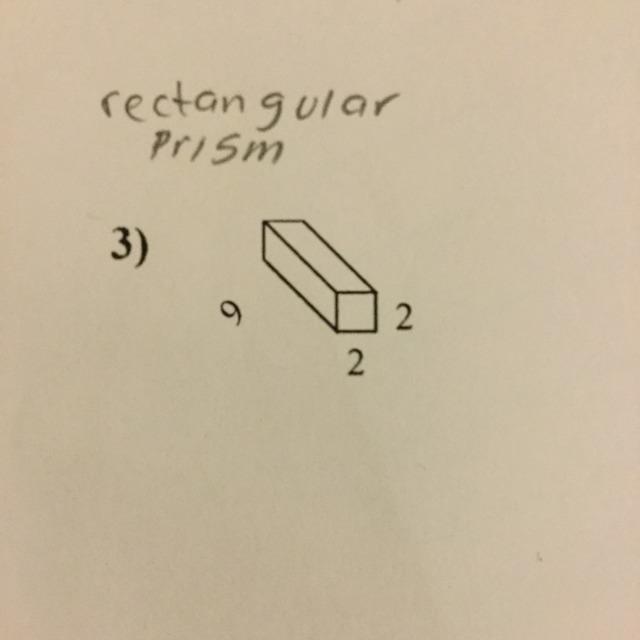 rectangular
Prism
3)
9
2
2